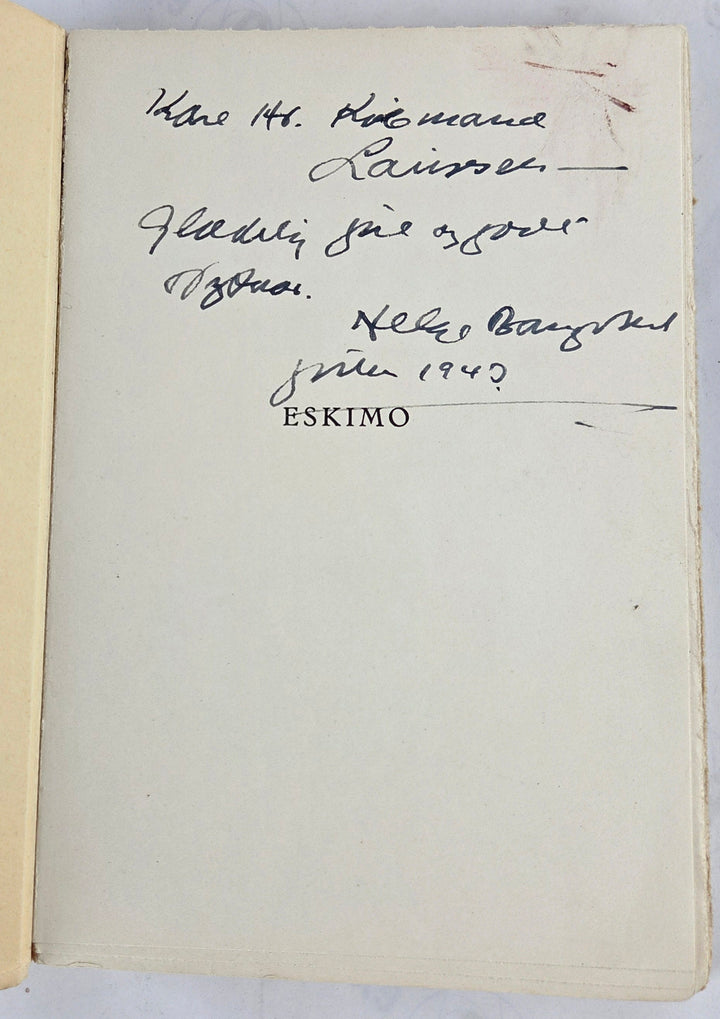 Kære Hr. Købmand
Laurssen —
Glædelig jul og godt
Nytaar.
Helge Bangsted
julen 194?
ESKIMO